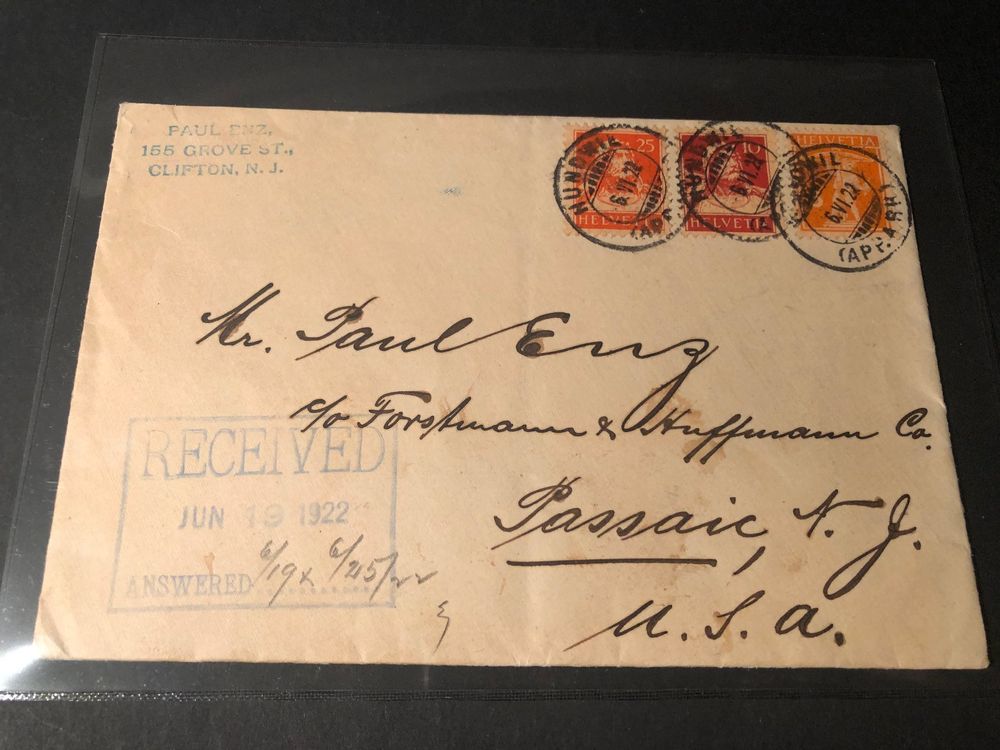 PAUL ENZ,
155 GROVE ST.,
CLIFTON, N. J.
25
HELVETIA
10
HELVETIA
HELVETIA
HUNDWIL
6.VI.22
(APP.
HUNDWIL
6.VI.22
6.VI.22
(APP. A.RH.)
Mr. Paul Enz
c/o Forstmann & Huffmann Co.
Passaic, N. J.
U. S. A.
RECEIVED
JUN 19 1922
ANSWERED 6/19 x 6/25/22